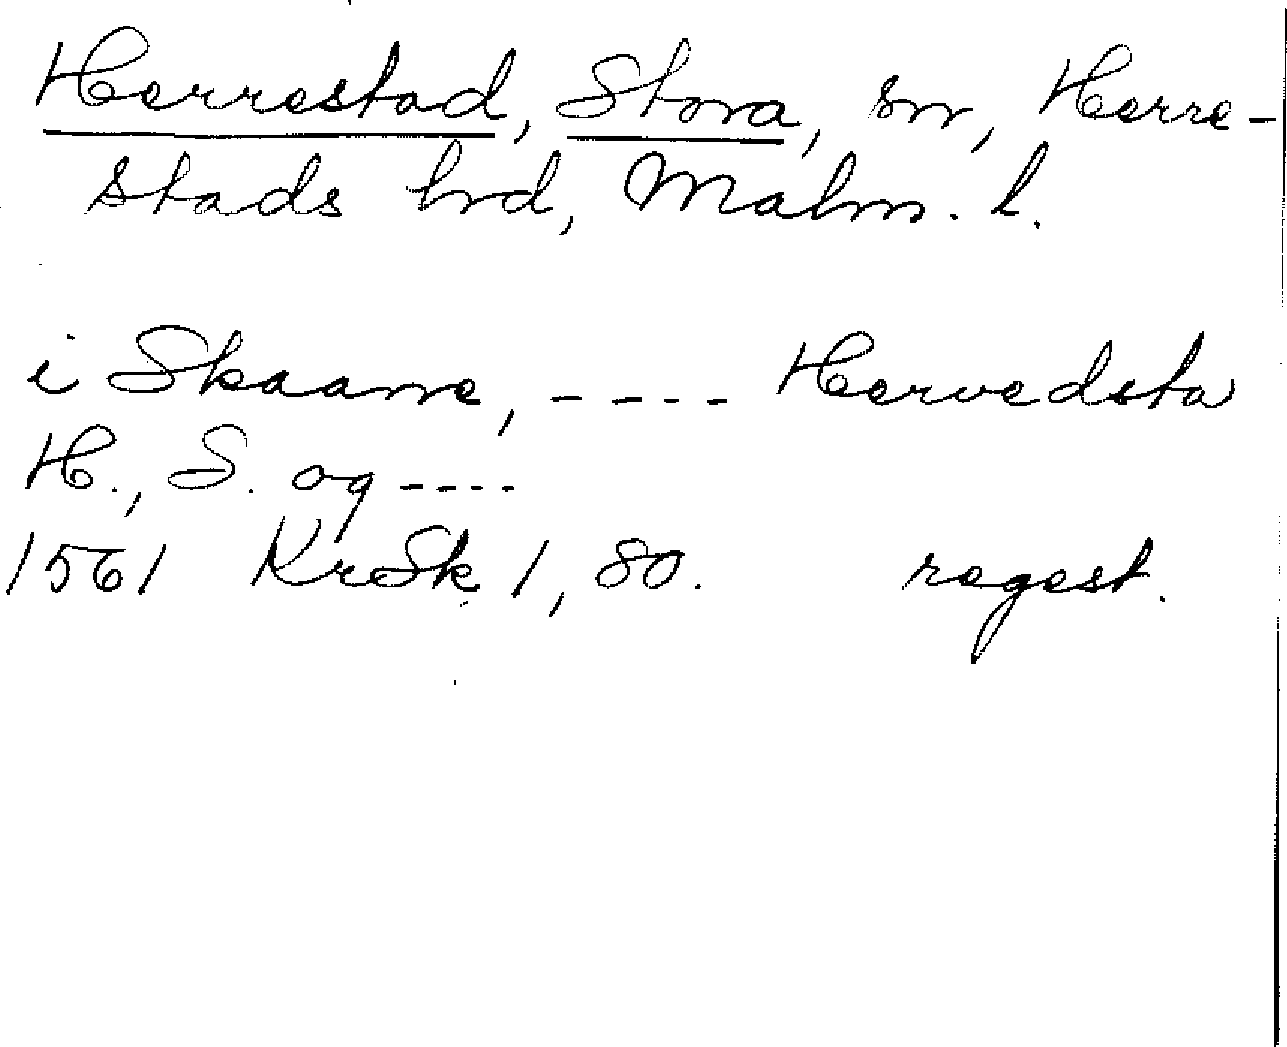 Herrestad, Stora, sn, Herre-
stads hrd, Malm. l.
i Skaane, ---- Hervedsta
H., S. og ----
1561 KrSk 1, 80. regest.